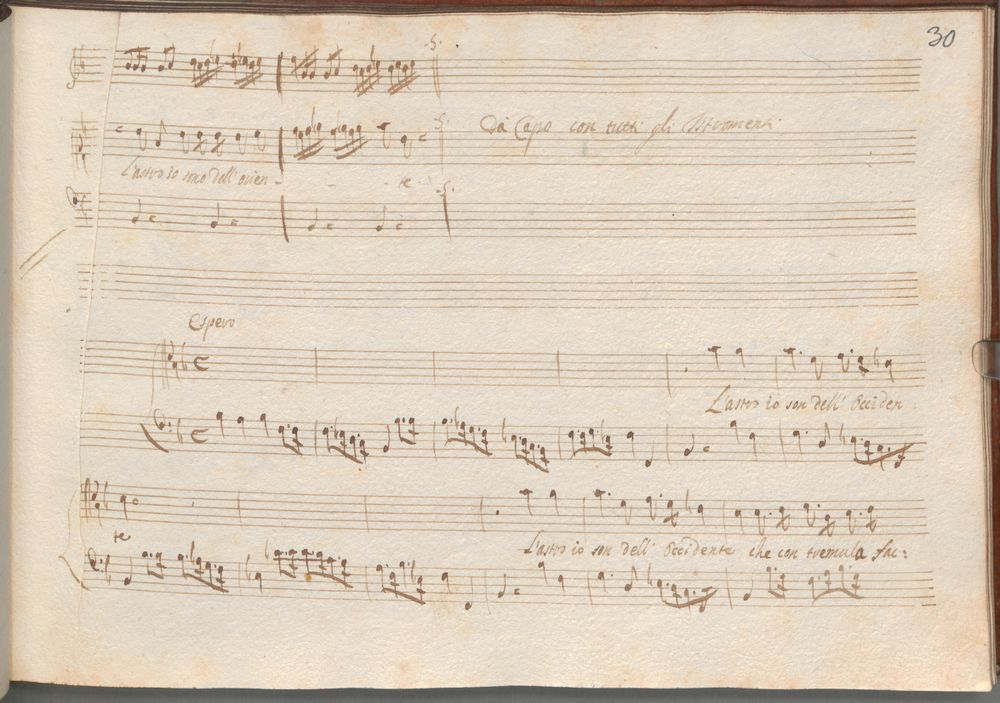 30
Da Capo con tutti gli Istromenti
L'astro io sono dell'orien - - - te
Espero
L'astro io son dell' Occiden
te
L'astro io son dell' Occidente che con tremula fac: